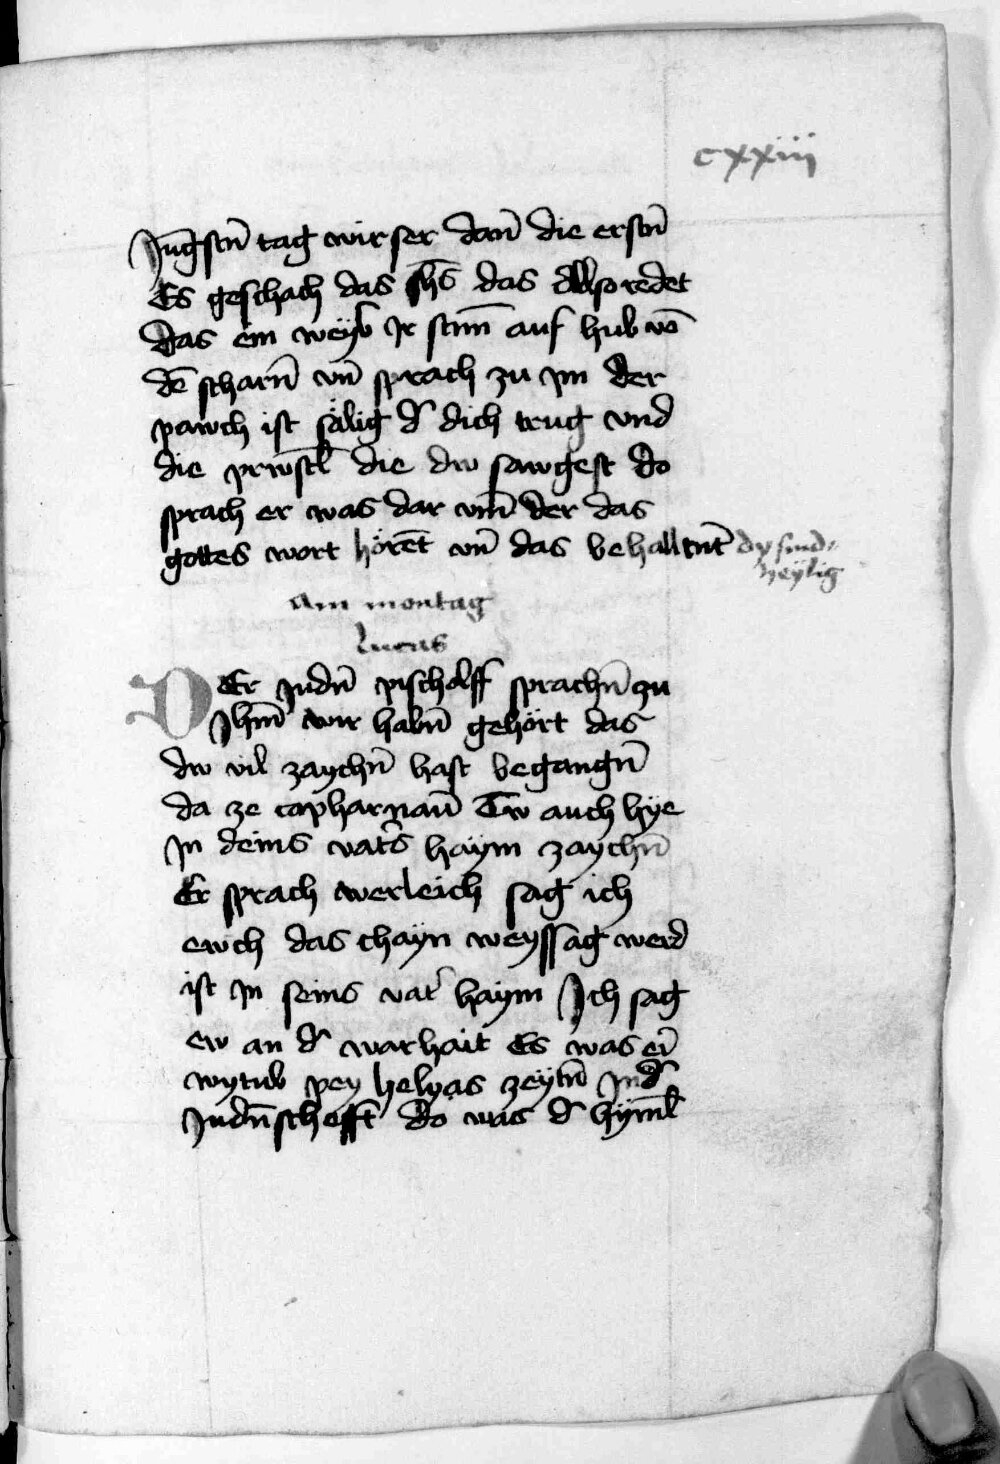 cxxiii
Jūgstn̄ tag wirser dan̄ die erstn̄
Es geschach das jhs̄ das allso redet
das ein weyb Ir stim̄ auf hub vō
dē scharn̄ vn̄ sprach zu im der
pawch ist sälig d' dich trug vnd
die prwstl̄ die dw sawgest do
sprach er was dar vm̄ der das
gottes wort hörēt vn̄ das behalltnt̄ dy sind
heylig
Am montag
lucas
DEr Judn̄ pischolff sprachn̄ zu
Jhm̄ wir habn̄ gehört das
dw vil zaychn̄ hast begangn̄
da ze capharnau̅ Tw auch hÿe
In deins vat's haÿm zaychn̄
Er sprach werleich sag ich
ewch das chayn weyssag werd
ist In seins vat' haÿm Ich sag
ew an d' warhait Es was ei̅
wytub pey helyas zeytn̄ In d'
Judn̄schefft do was d' hÿml̄